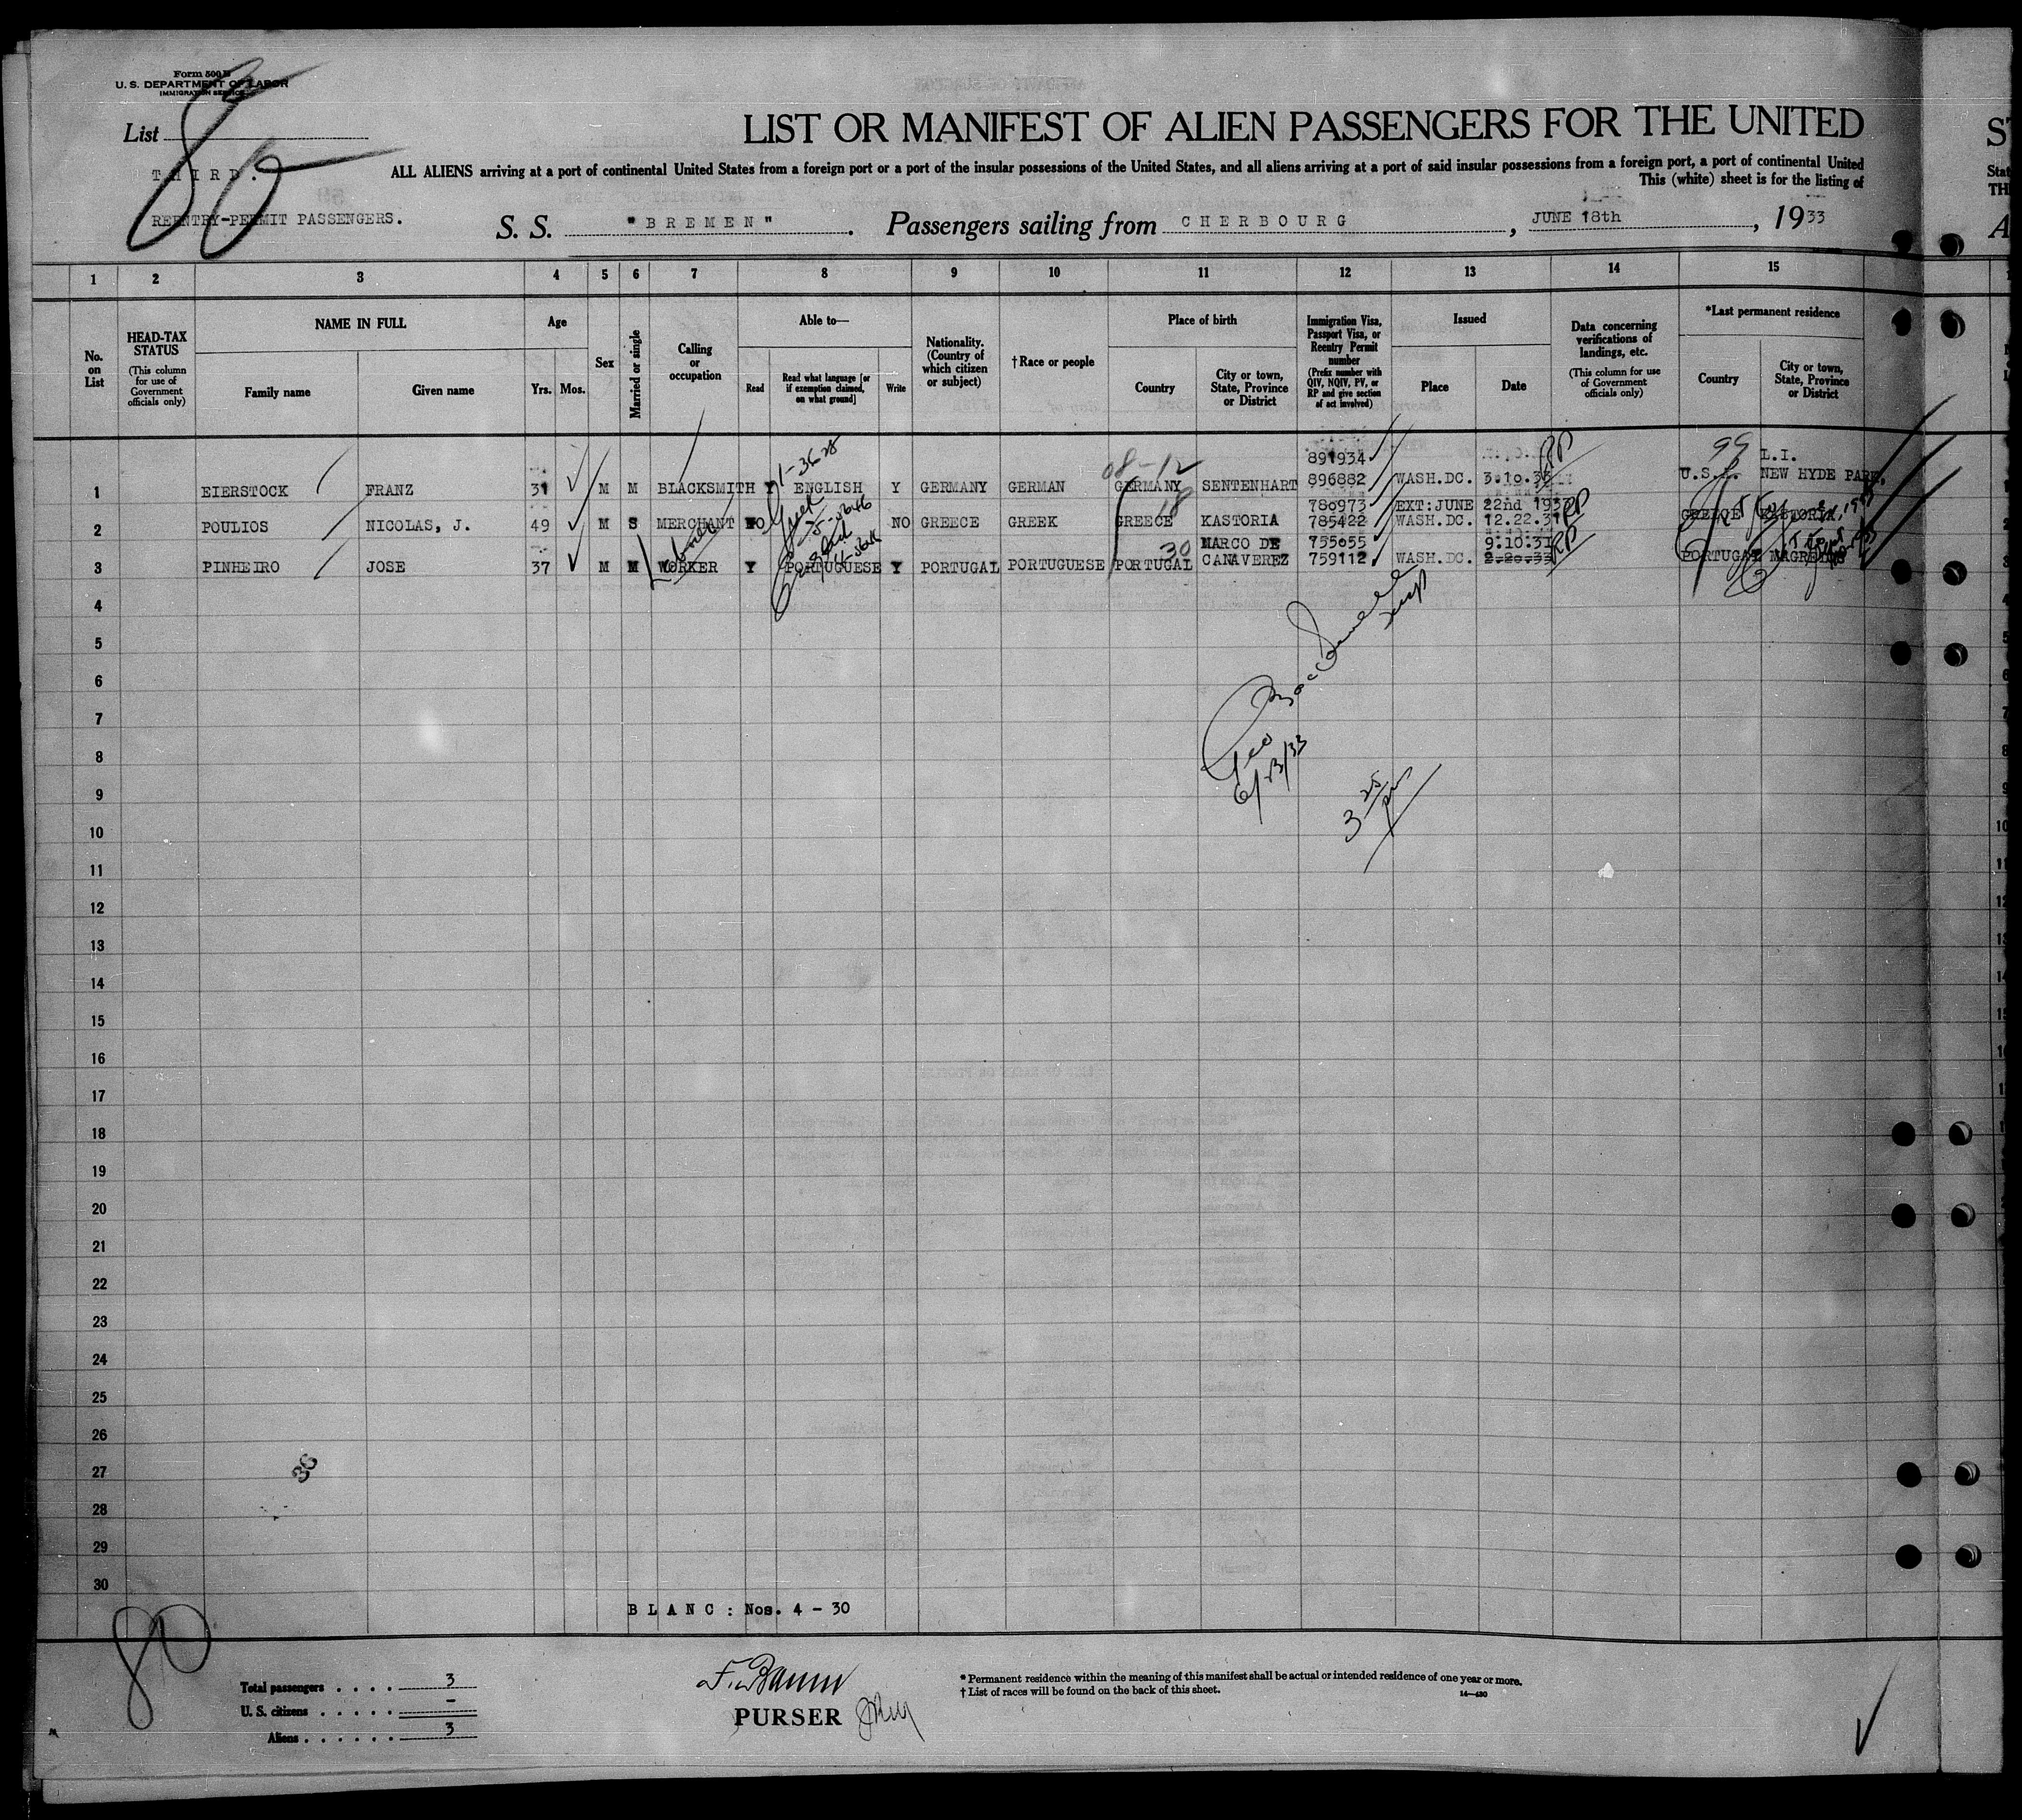 Form 500 B
U. S. DEPARTMENT OF LABOR
IMMIGRATION SERVICE
List
80
THIRD.
REENTRY-PERMIT PASSENGERS.
LIST OR MANIFEST OF ALIEN PASSENGERS FOR THE UNITED
ALL ALIENS arriving at a port of continental United States from a foreign port or a port of the insular possessions of the United States, and all aliens arriving at a port of said insular possessions from a foreign port, a port of continental United
This (white) sheet is for the listing of
S. S. "BREMEN". Passengers sailing from CHERBOURG, JUNE 18th, 1933
1 2 3 4 5 6 7 8 9 10 11 12 13 14 15
No. on List
HEAD-TAX STATUS
(This column for use of Government officials only)
NAME IN FULL
Family name
Given name
Age
Yrs. Mos.
Sex
Married or single
Calling or occupation
Able to—
Read
Read what language [or if exemption claimed, on what ground]
Write
Nationality. (Country of which citizen or subject)
†Race or people
Place of birth
Country
City or town, State, Province or District
Immigration Visa, Passport Visa, or Reentry Permit number
(Prefix number with QIV, NQIV, PV, or RP and give section of act involved)
Issued
Place
Date
Data concerning verifications of landings, etc.
(This column for use of Government officials only)
*Last permanent residence
Country
City or town, State, Province or District
08-12
891934
99 L.I.
1 EIERSTOCK FRANZ 31 M M BLACKSMITH Y ENGLISH Y GERMANY GERMAN GERMANY SENTENHART 896882 WASH.DC. 3.10.33 RP U.S.A. NEW HYDE PARK.
18 780973 EXT:JUNE 22nd 1933
2 POULIOS NICOLAS, J. 49 M S MERCHANT NO Greek NO GREECE GREEK GREECE KASTORIA 785422 WASH.DC. 12.22.31 RP GREECE KASTORIA
30 MARCO DE 755055 9.10.31
3 PINHEIRO JOSE 37 M M WORKER Y English PORTUGUESE Y PORTUGAL PORTUGUESE PORTUGAL CANAVEREZ 759112 WASH.DC. 2.20.33 RP PORTUGAL
4
5
6
7
8
9
10
11
12
13
14
15
16
17
18
19
20
21
22
23
24
25
26
27
28
29
30
6/23/33
3 25 pm
36
BLANC: Nos. 4 - 30
80
Total passengers . . . . 3
U. S. citizens . . . . . –
Aliens . . . . . . 3
PURSER
* Permanent residence within the meaning of this manifest shall be actual or intended residence of one year or more.
† List of races will be found on the back of this sheet.
14—430